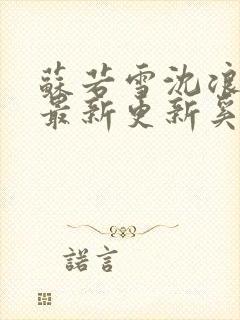 蘇若雪沈浪
最新更新奚
諾言